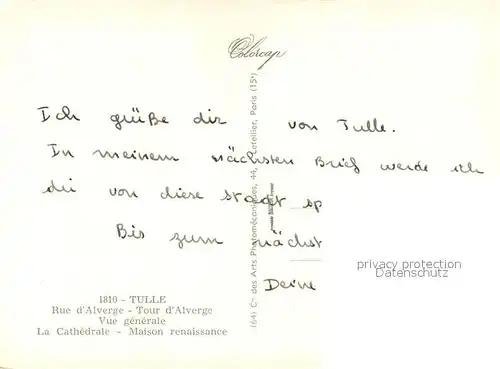 Colorcap
Ich grüße dir von Tulle.
In meinem nächsten Brief werde ich
dir von diese stadt sp
Bis zum nächst
Deine
privacy protection
Datenschutz
1810 - TULLE
Rue d'Alverge - Tour d'Alverge
Vue générale
La Cathédrale - Maison renaissance
(64) Cie des Arts Photomécaniques, 44, Letellier, Paris (15e)